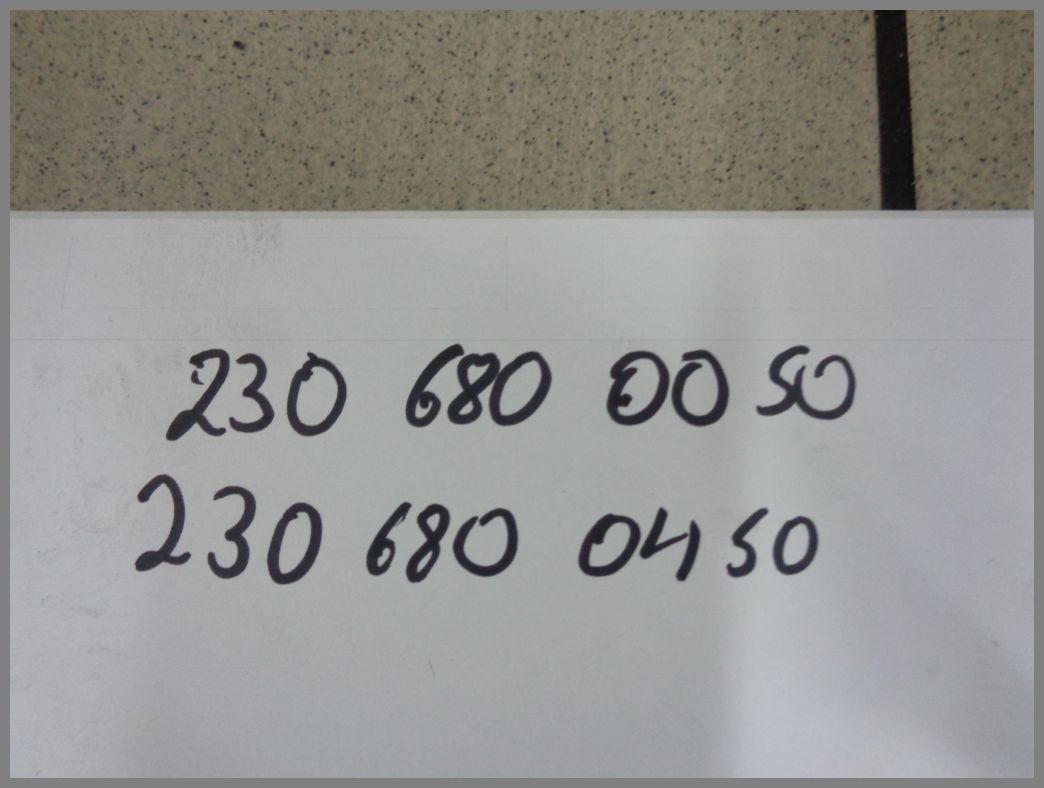 230 680 00 50
230 680 04 50